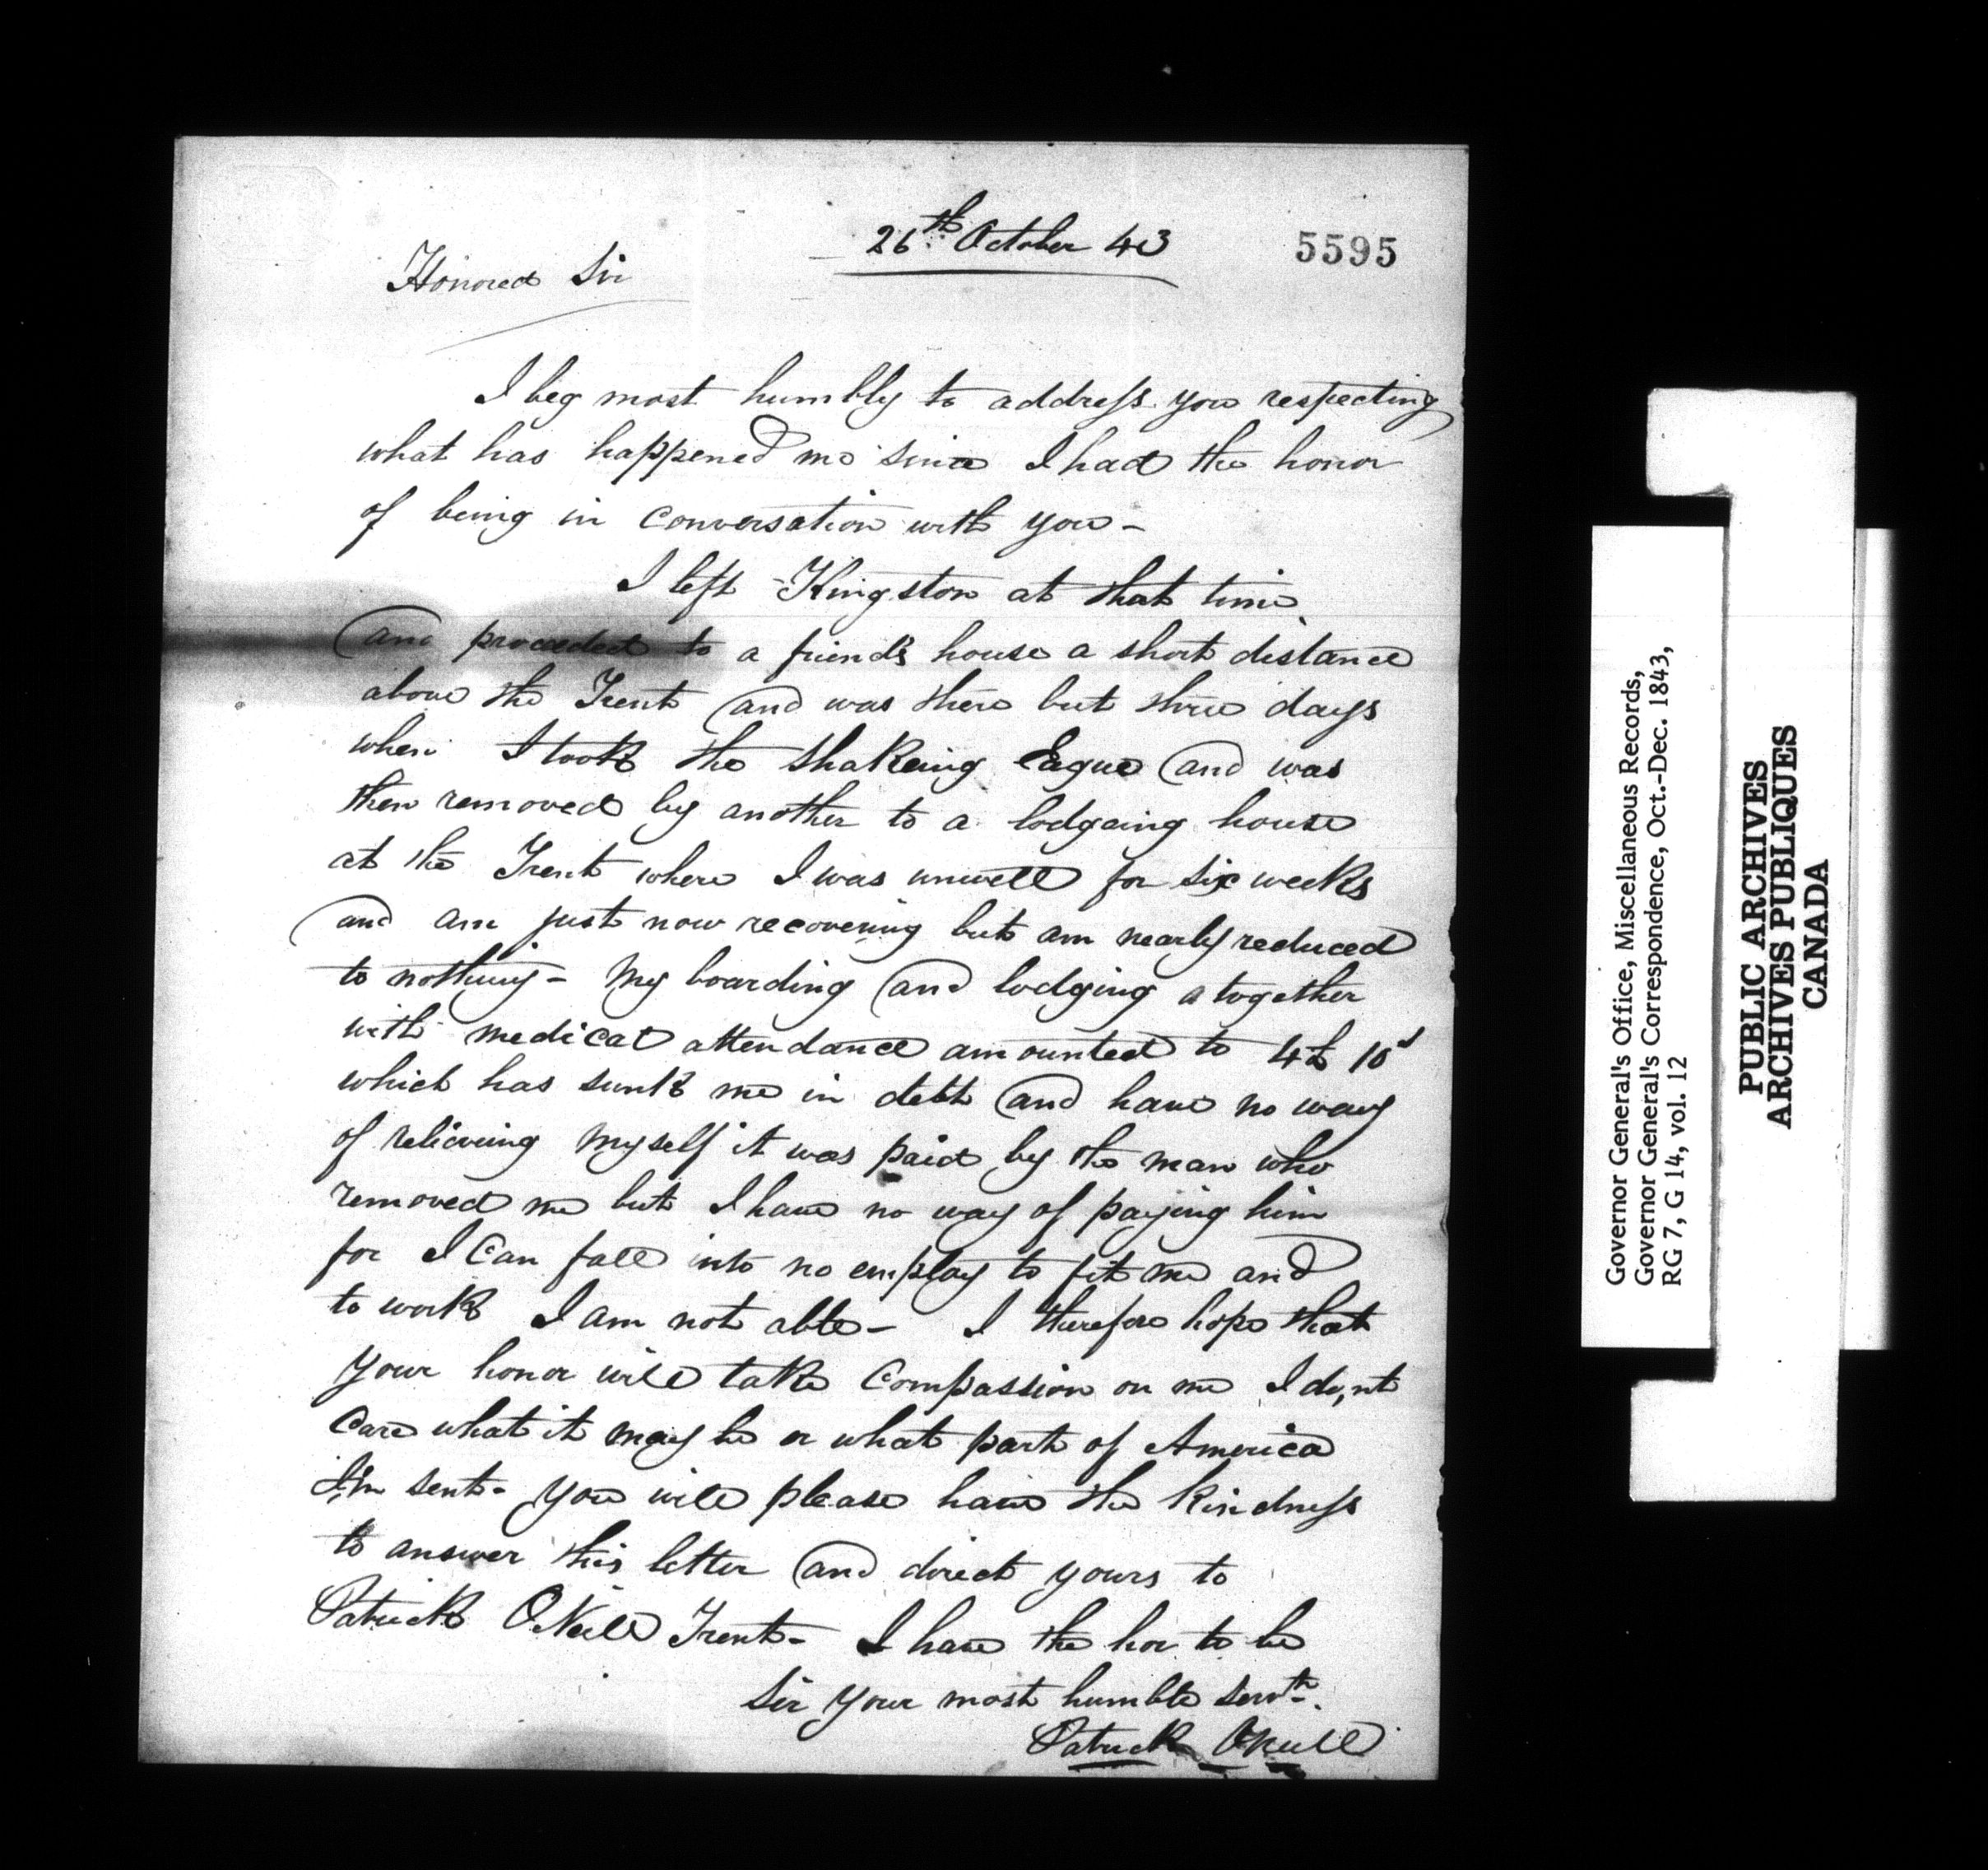 26th October 43
5595
Honored Sir
I beg most humbly to address you respecting
what has happened me since I had the honor
of being in conversation with you -
I left Kingston at that time
and proceeded to a friends house a short distance
above the Trent and was there but three days
when I took the shakeing Eague and was
then removed by another to a lodgeing house
at the Trent where I was unwell for six weeks
and am just now recovering but am nearly reduced
to nothing - My boarding and lodging a together
with medical attendance amounted to 4£ 10s
which has sunk me in debt and have no way
of relieveing myself it was paid by the man who
removed me but I have no way of paying him
for I can fall into no employ to fit me and
to work I am not able - I therefore hope that
your honor will take compassion on me I do,nt
care what it may be or what part of America
I,m sent - you will please have the kindness
to answer this letter and direct yours to
Patrick ONeill Trent - I have the hor to be
Sir your most humble servt.
Patrick ONeill
Governor General's Office, Miscellaneous Records,
Governor General's Correspondence, Oct.-Dec. 1843,
RG 7, G 14, vol. 12
PUBLIC ARCHIVES
ARCHIVES PUBLIQUES
CANADA